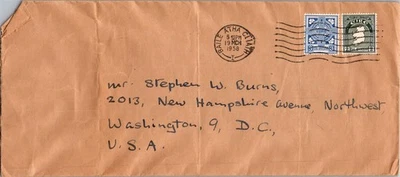 BAILE ÁTHA CLIATH
1958
mr. Stephen W. Burns,
2013, New Hampshire avenue, Northwest
Washington, 9, D.C.,
U.S.A.